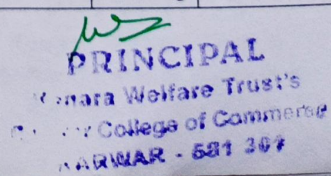 PRINCIPAL
Kanara Welfare Trust's
College of Commerce
KARWAR - 581 301